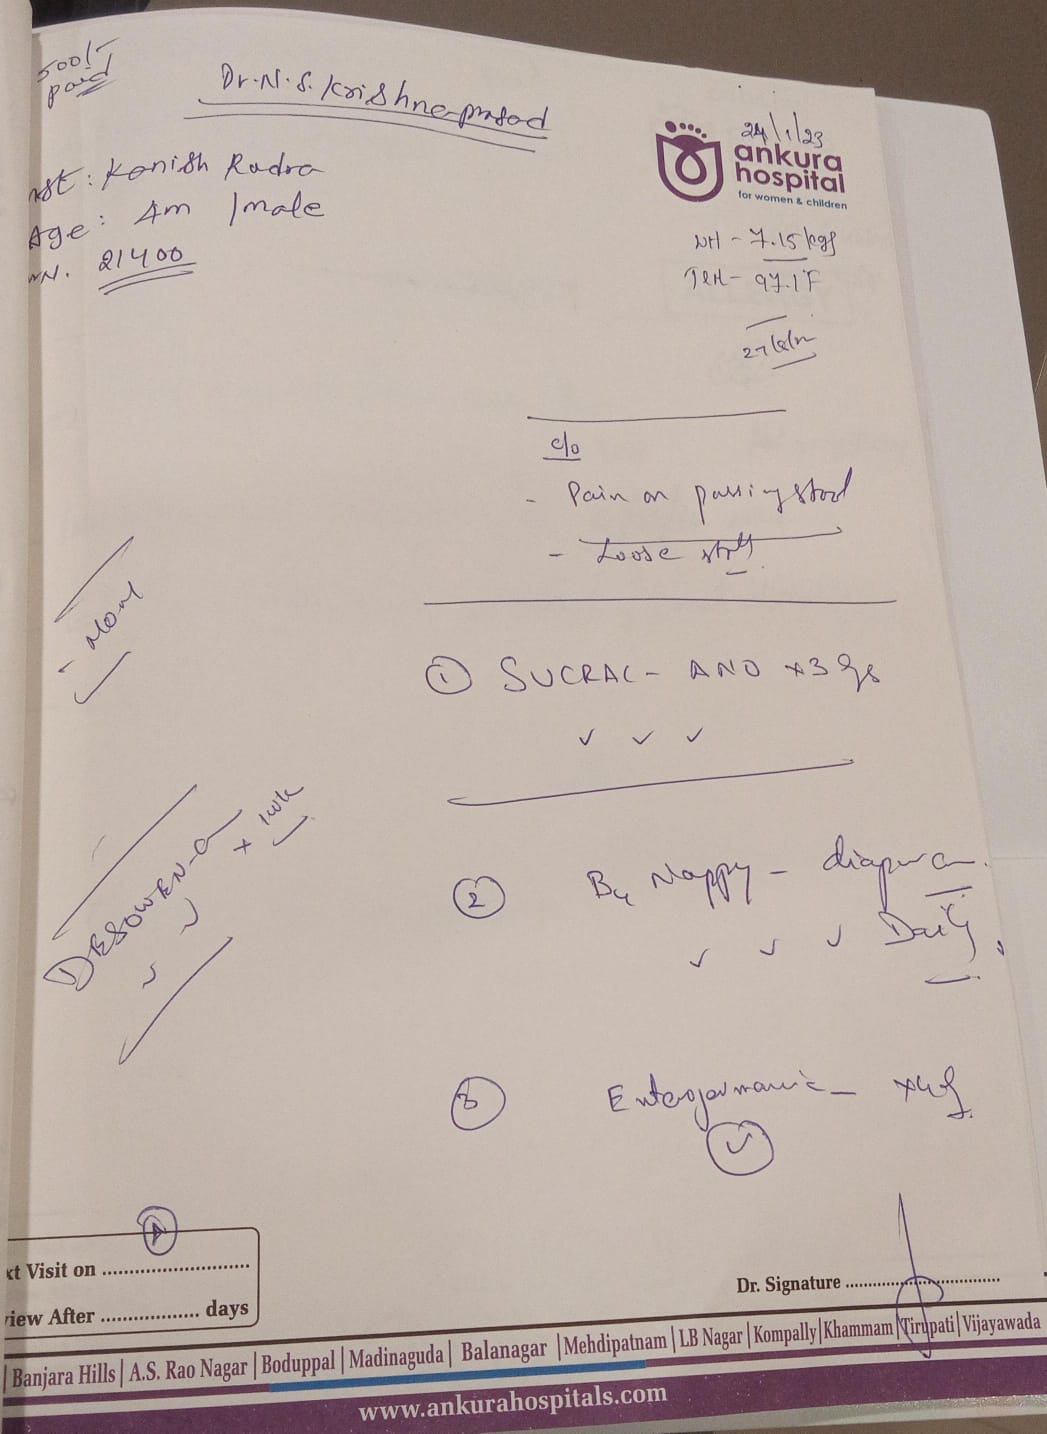 500/-
paid
Dr. N. S. Krishna prasad
24/1/23
ankura
hospital
for women & children
: Kanish Rudra
Age: 4m /male
21400
Wt - 7.15 kgs
Tem - 97.1°F
c/o
- Pain on passing stool
- Loose stools
① SUCRAL - ANO x3
DESOWEN-
x 1wk
② By Nappy - diaper
Daily
③ Enterogermania -
xt Visit on
iew After ................. days
Dr. Signature
| Banjara Hills | A.S. Rao Nagar | Boduppal | Madinaguda | Balanagar | Mehdipatnam | LB Nagar | Kompally | Khammam | Tirupati | Vijayawada
www.ankurahospitals.com